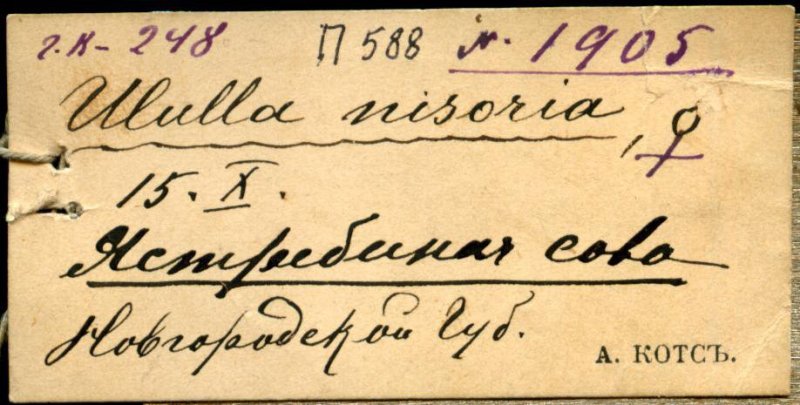 г.К- 248 П 588 N. 1905
Ululla nisoria, ♀
15. X.
Ястребиная сова
Новгородской Губ.
А. КОТСЪ.